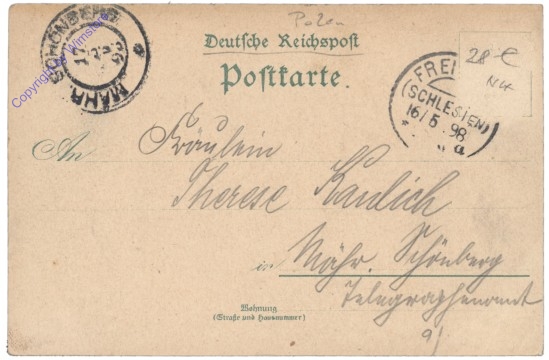 Polen
Deutsche Reichspost
Postkarte.
28 €
N4
MÄHR. SCHÖNBERG
17 5 98
FREI
(SCHLESIEN)
16/5 98
* a
Copyright by
An Fräulein
Therese Kaulich
in Mähr. Schönberg
Telegraphenamt
Wohnung
(Straße und Hausnummer)
9)